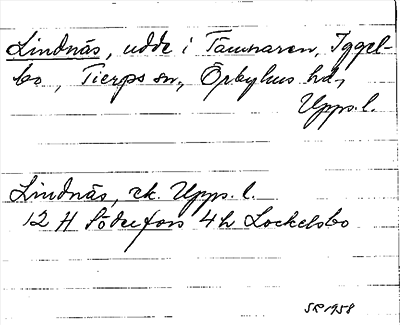 Lindnäs, udde i Tämnaren, Iggel-
bo, Tierps sn, Örbyhus hd,
Upps. l.
Lindnäs, rk. Upps. l.
12 H Söderfors 4h Lockelsbo
SR 1958